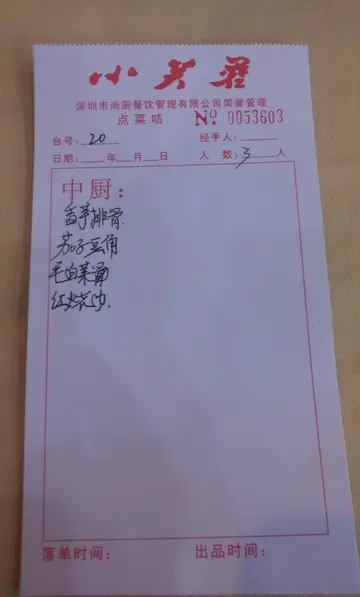 小芙蓉
深圳市尚厨餐饮管理有限公司荣誉管理
点菜咭 Nº 0053603
台号：20 经手人：
日期： 年 月 日 人 数：3 人
中厨：
香芋排骨
茄子豆角
毛白菜
红烧肉
落单时间： 出品时间：